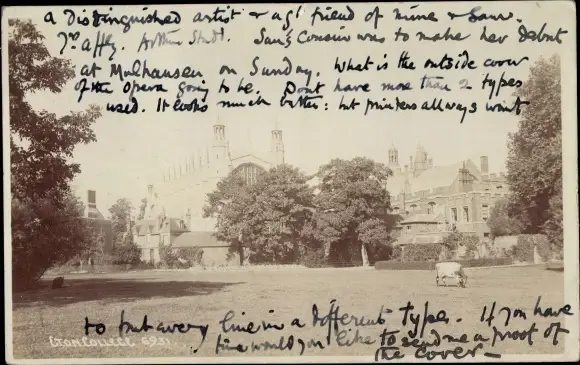 a Distinguished artist & a gt friend of mine & Saw.
Yrs affly. Arthur Studd. Saw's Cousin was to make her Debut
at Mulhausen on Sunday. What is the outside cover
of the Opera going to be. Dont have more than 2 types
used. It looks much better: but printers allways want
to put every line in a different type. If you have
time would you like to send me a proof of
the cover—
ETON COLLEGE 6931